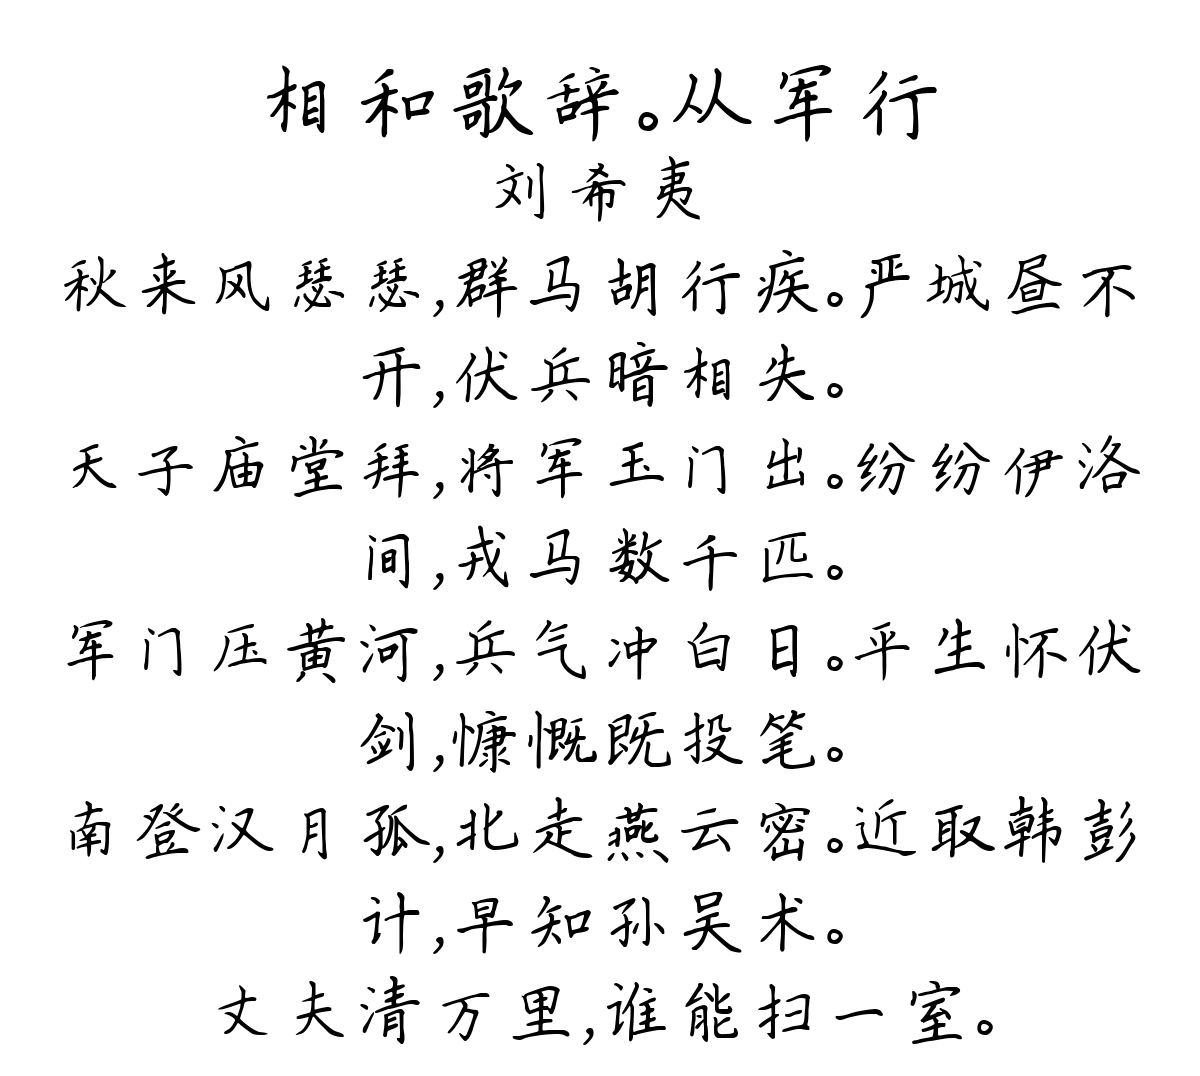 相和歌辞。从军行
刘希夷
秋来风瑟瑟,群马胡行疾。严城昼不
开,伏兵暗相失。
天子庙堂拜,将军玉门出。纷纷伊洛
间,戎马数千匹。
军门压黄河,兵气冲白日。平生怀伏
剑,慷慨既投笔。
南登汉月孤,北走燕云密。近取韩彭
计,早知孙吴术。
丈夫清万里,谁能扫一室。